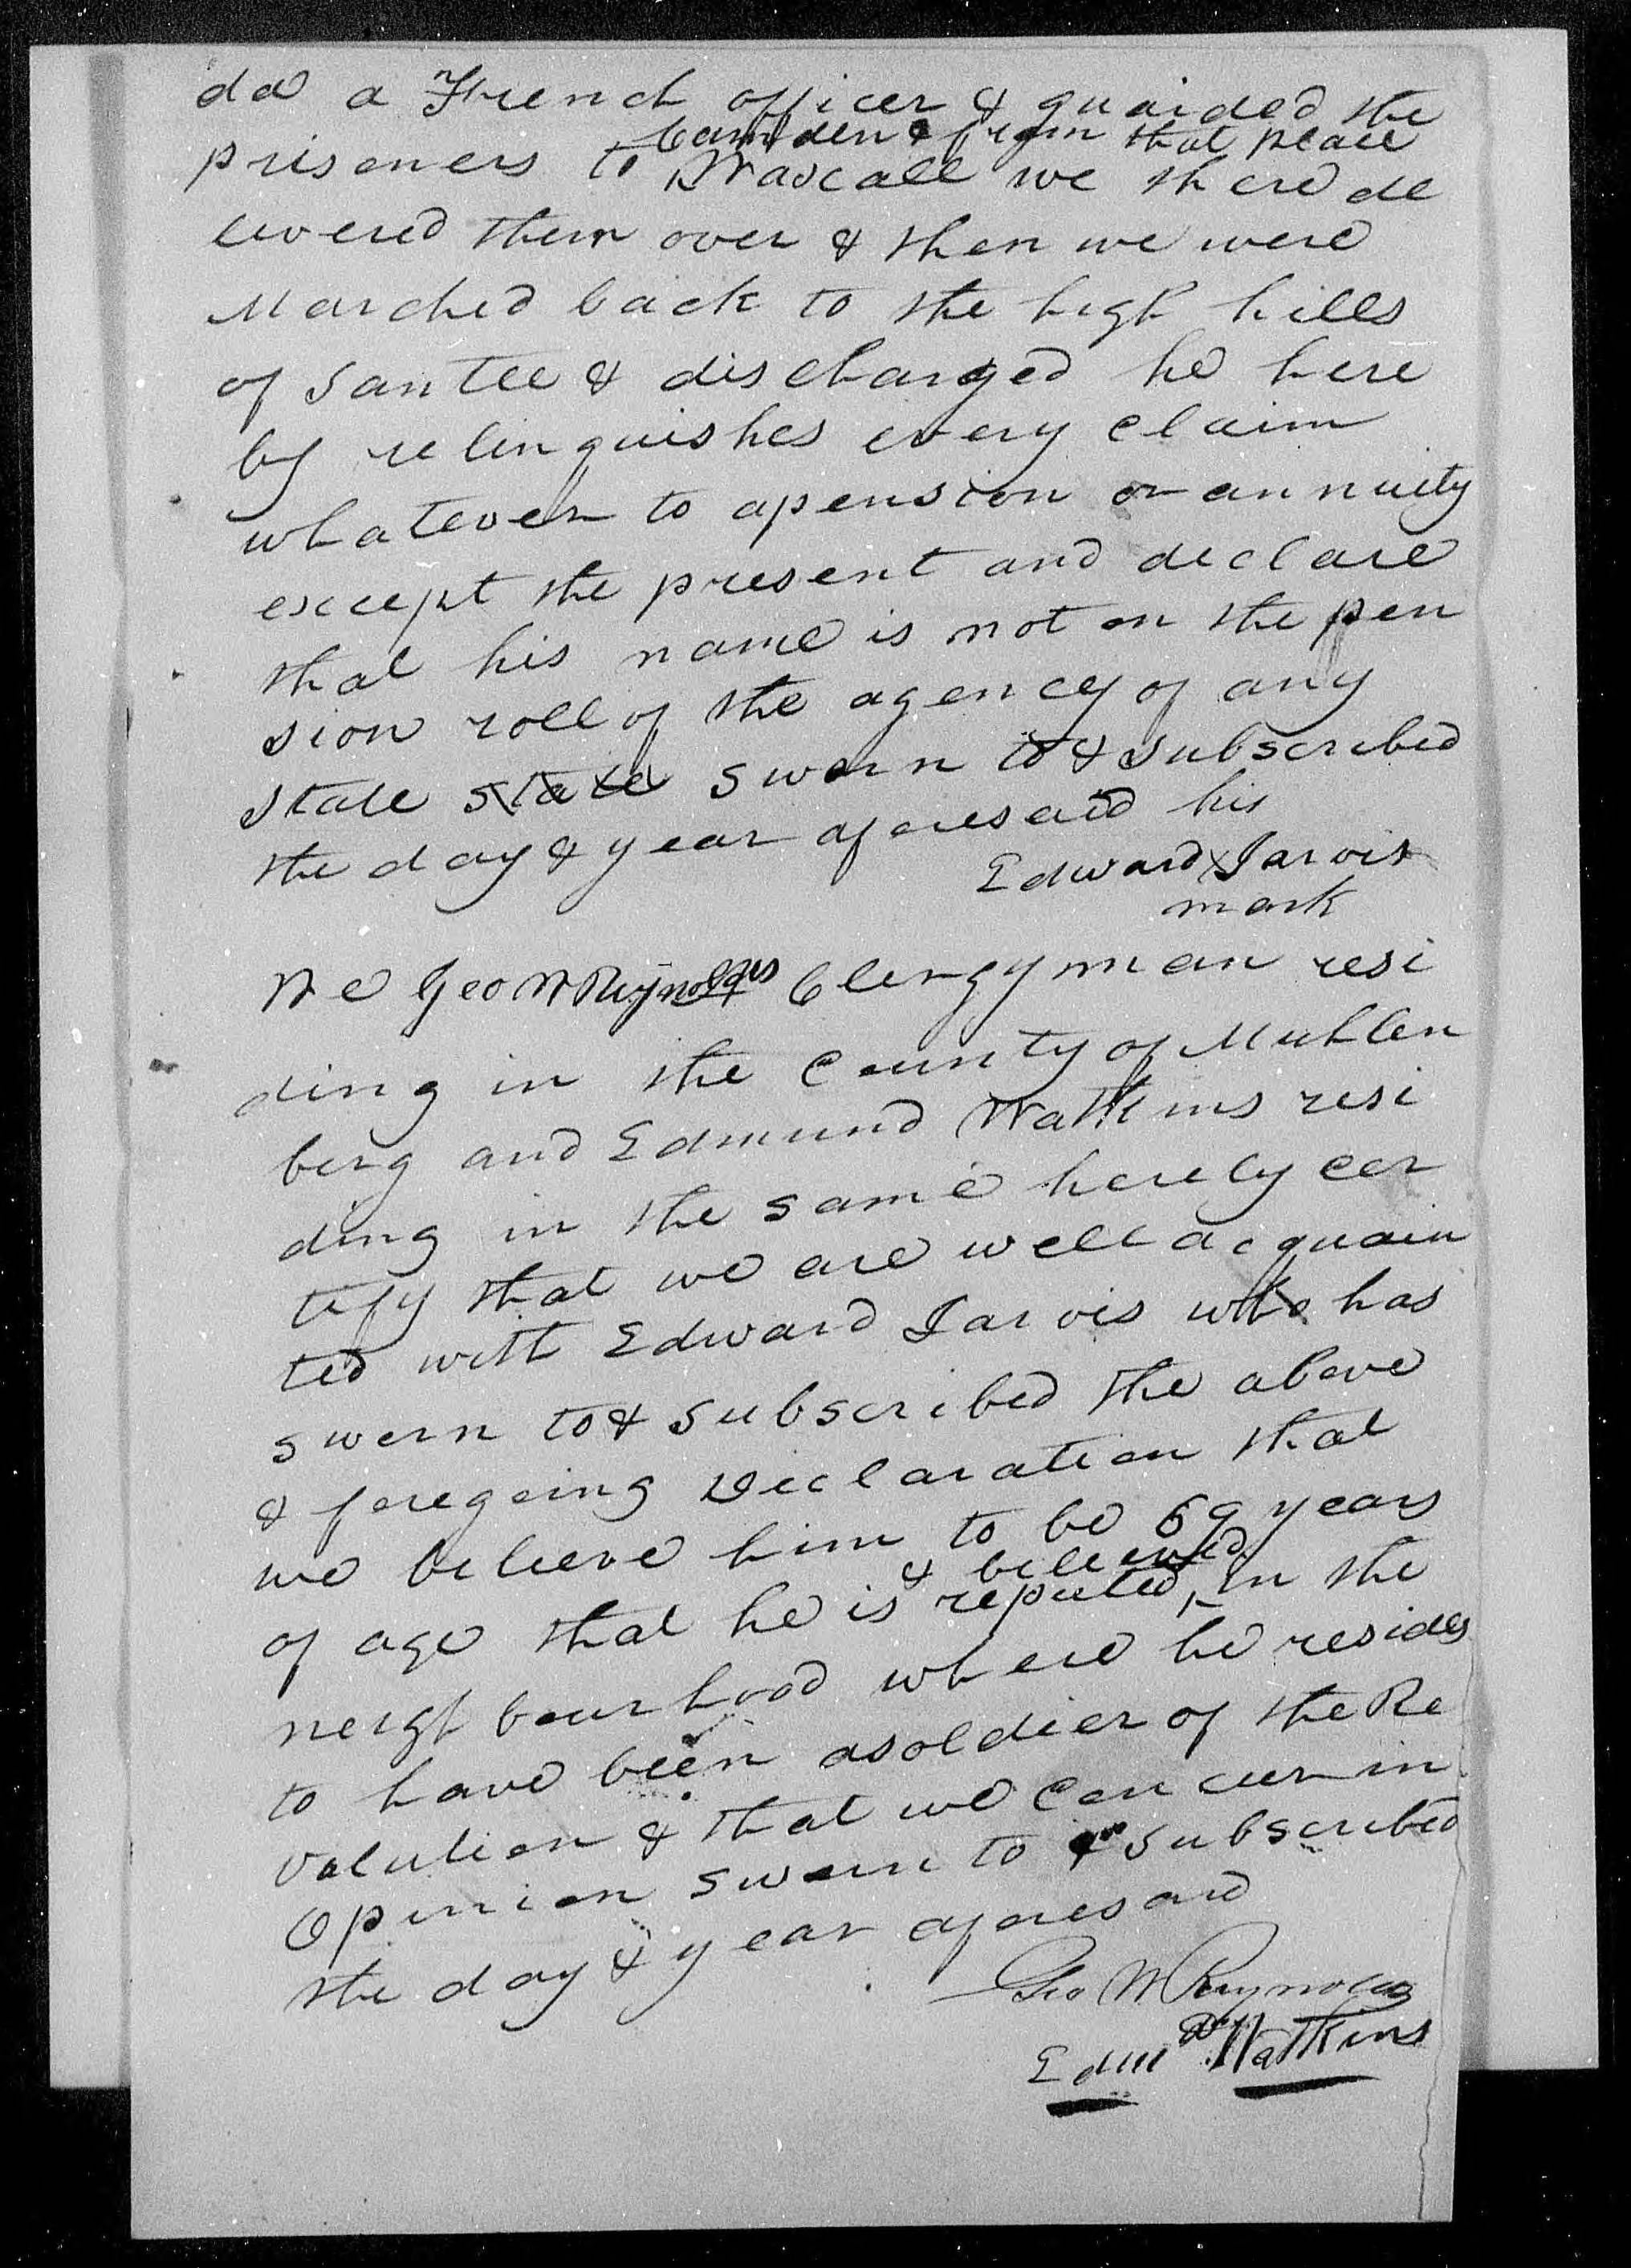 da a French officer & guarded the
Camden & from that place
prisoners to Wascall we there de
livered them over & then we were
Marched back to the high hills
of Santee & discharged he here
by relinquishes every claim
whatever to a pension or annuity
except the present and declare
that his name is not on the pen
sion roll of the agency of any
State state sworn to & subscribed
the day & year aforesaid his
Edward X Jarvis
mark
We Geo W Reynolds Clergyman resi
ding in the County of Muhlen
berg and Edmund Watkins resi
ding in the same hereby cer
tify that we are well acquain
ted with Edward Jarvis who has
sworn to & subscribed the above
& foregoing Declaration that
we believe him to be 69 years
& believed
of age that he is reputed, in the
neighbourhood where he resides
to have been a soldier of the Re
volution & that we concur in
Opinion sworn to & subscribed
the day & year aforesaid
Geo W Reynolds
Edmd Watkins